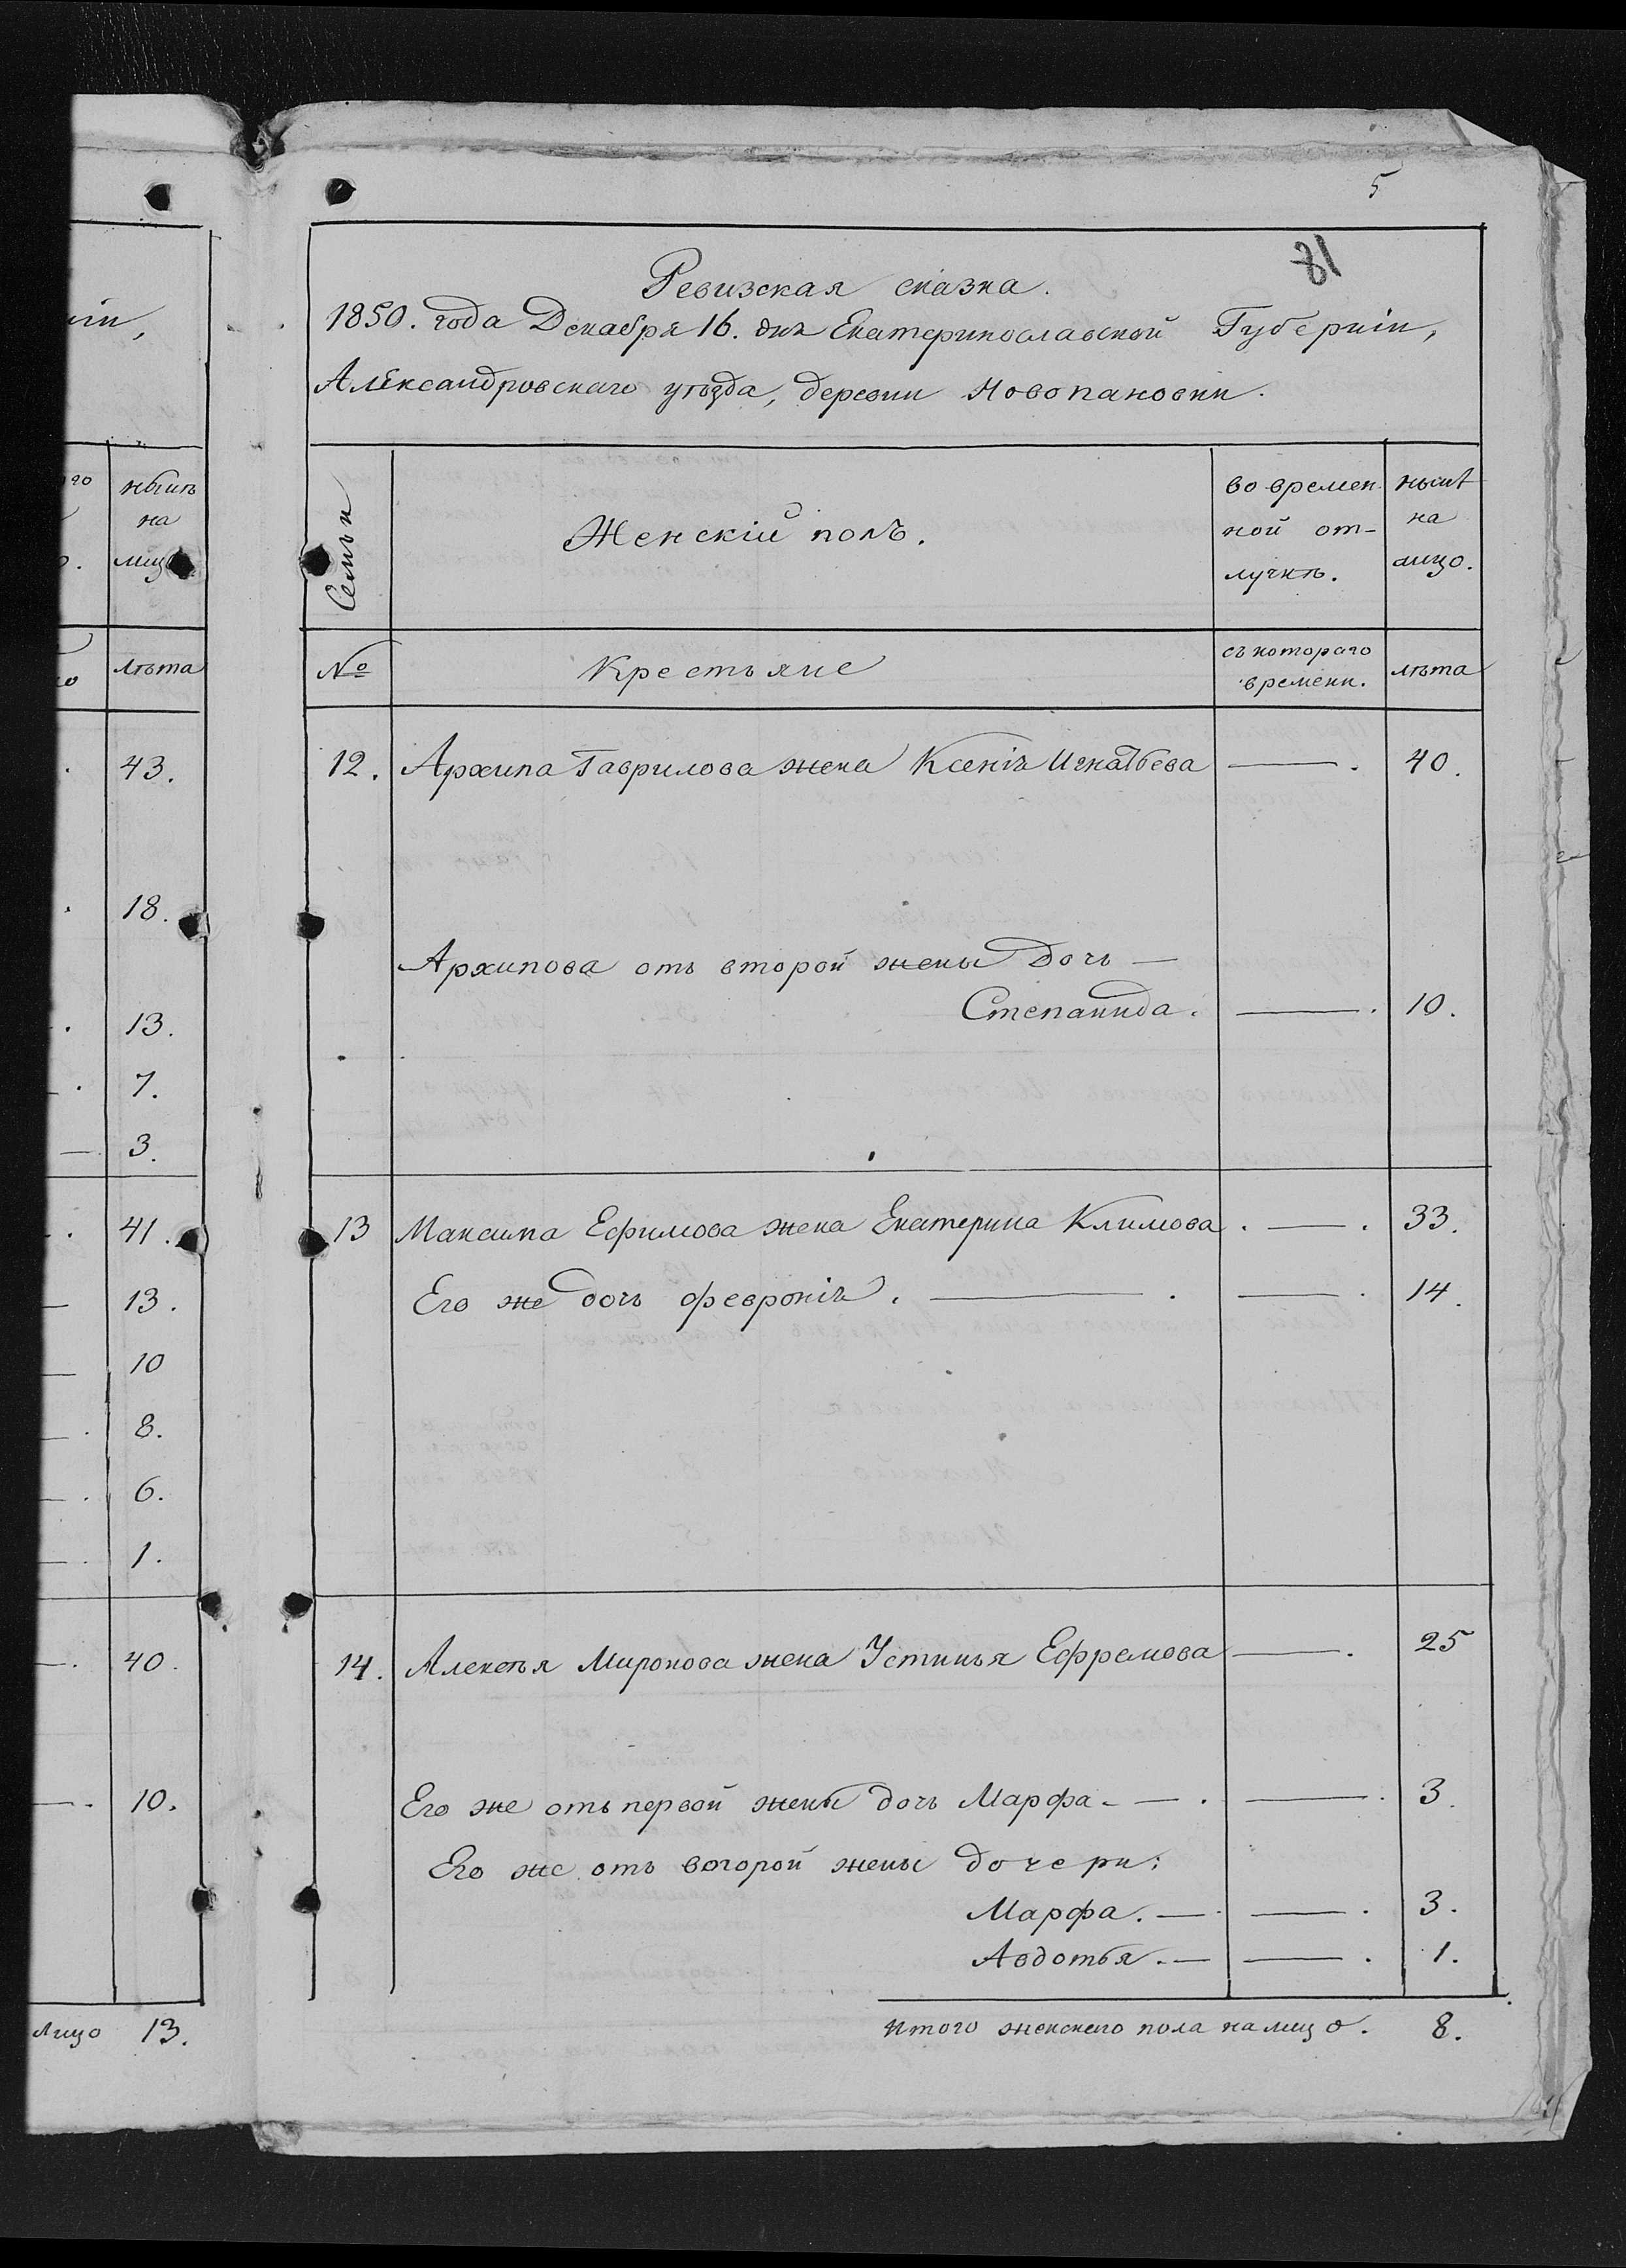 іи,
ныне
на
лицо
лѣта
43.
18.
13.
7.
3.
41.
13.
10
8.
6.
1.
40.
10.
лицо 13.
5
81
Ревизская сказка.
1850. года Декабря 16. дня Екатеринославской Губерніи,
Александровскаго уѣзда, деревни Новопановки.
Семьи
Женскій полъ.
во времен
ной от-
лучкѣ.
нынѣ
на
лицо.
№
Крестьяне
съ котораго
времени.
лѣта
12. Архипа Гаврилова жена Ксенія Игнатьева — . 40.
Архипова отъ второй жены Дочь —
Степанида. — . 10.
13 Максима Ефимова жена Екатерина Климова . — . 33.
Его же дочь Февронія. — . — . 14.
14. Алексѣя Миронова жена Устинья Ефремова — . 25
Его же отъ первой жены дочь Марфа - — . — . 3.
Его же отъ второй жены дочери:
Марфа. — . — . 3.
Авдотья. — — . 1.
Итого женскаго пола налицо. 8.